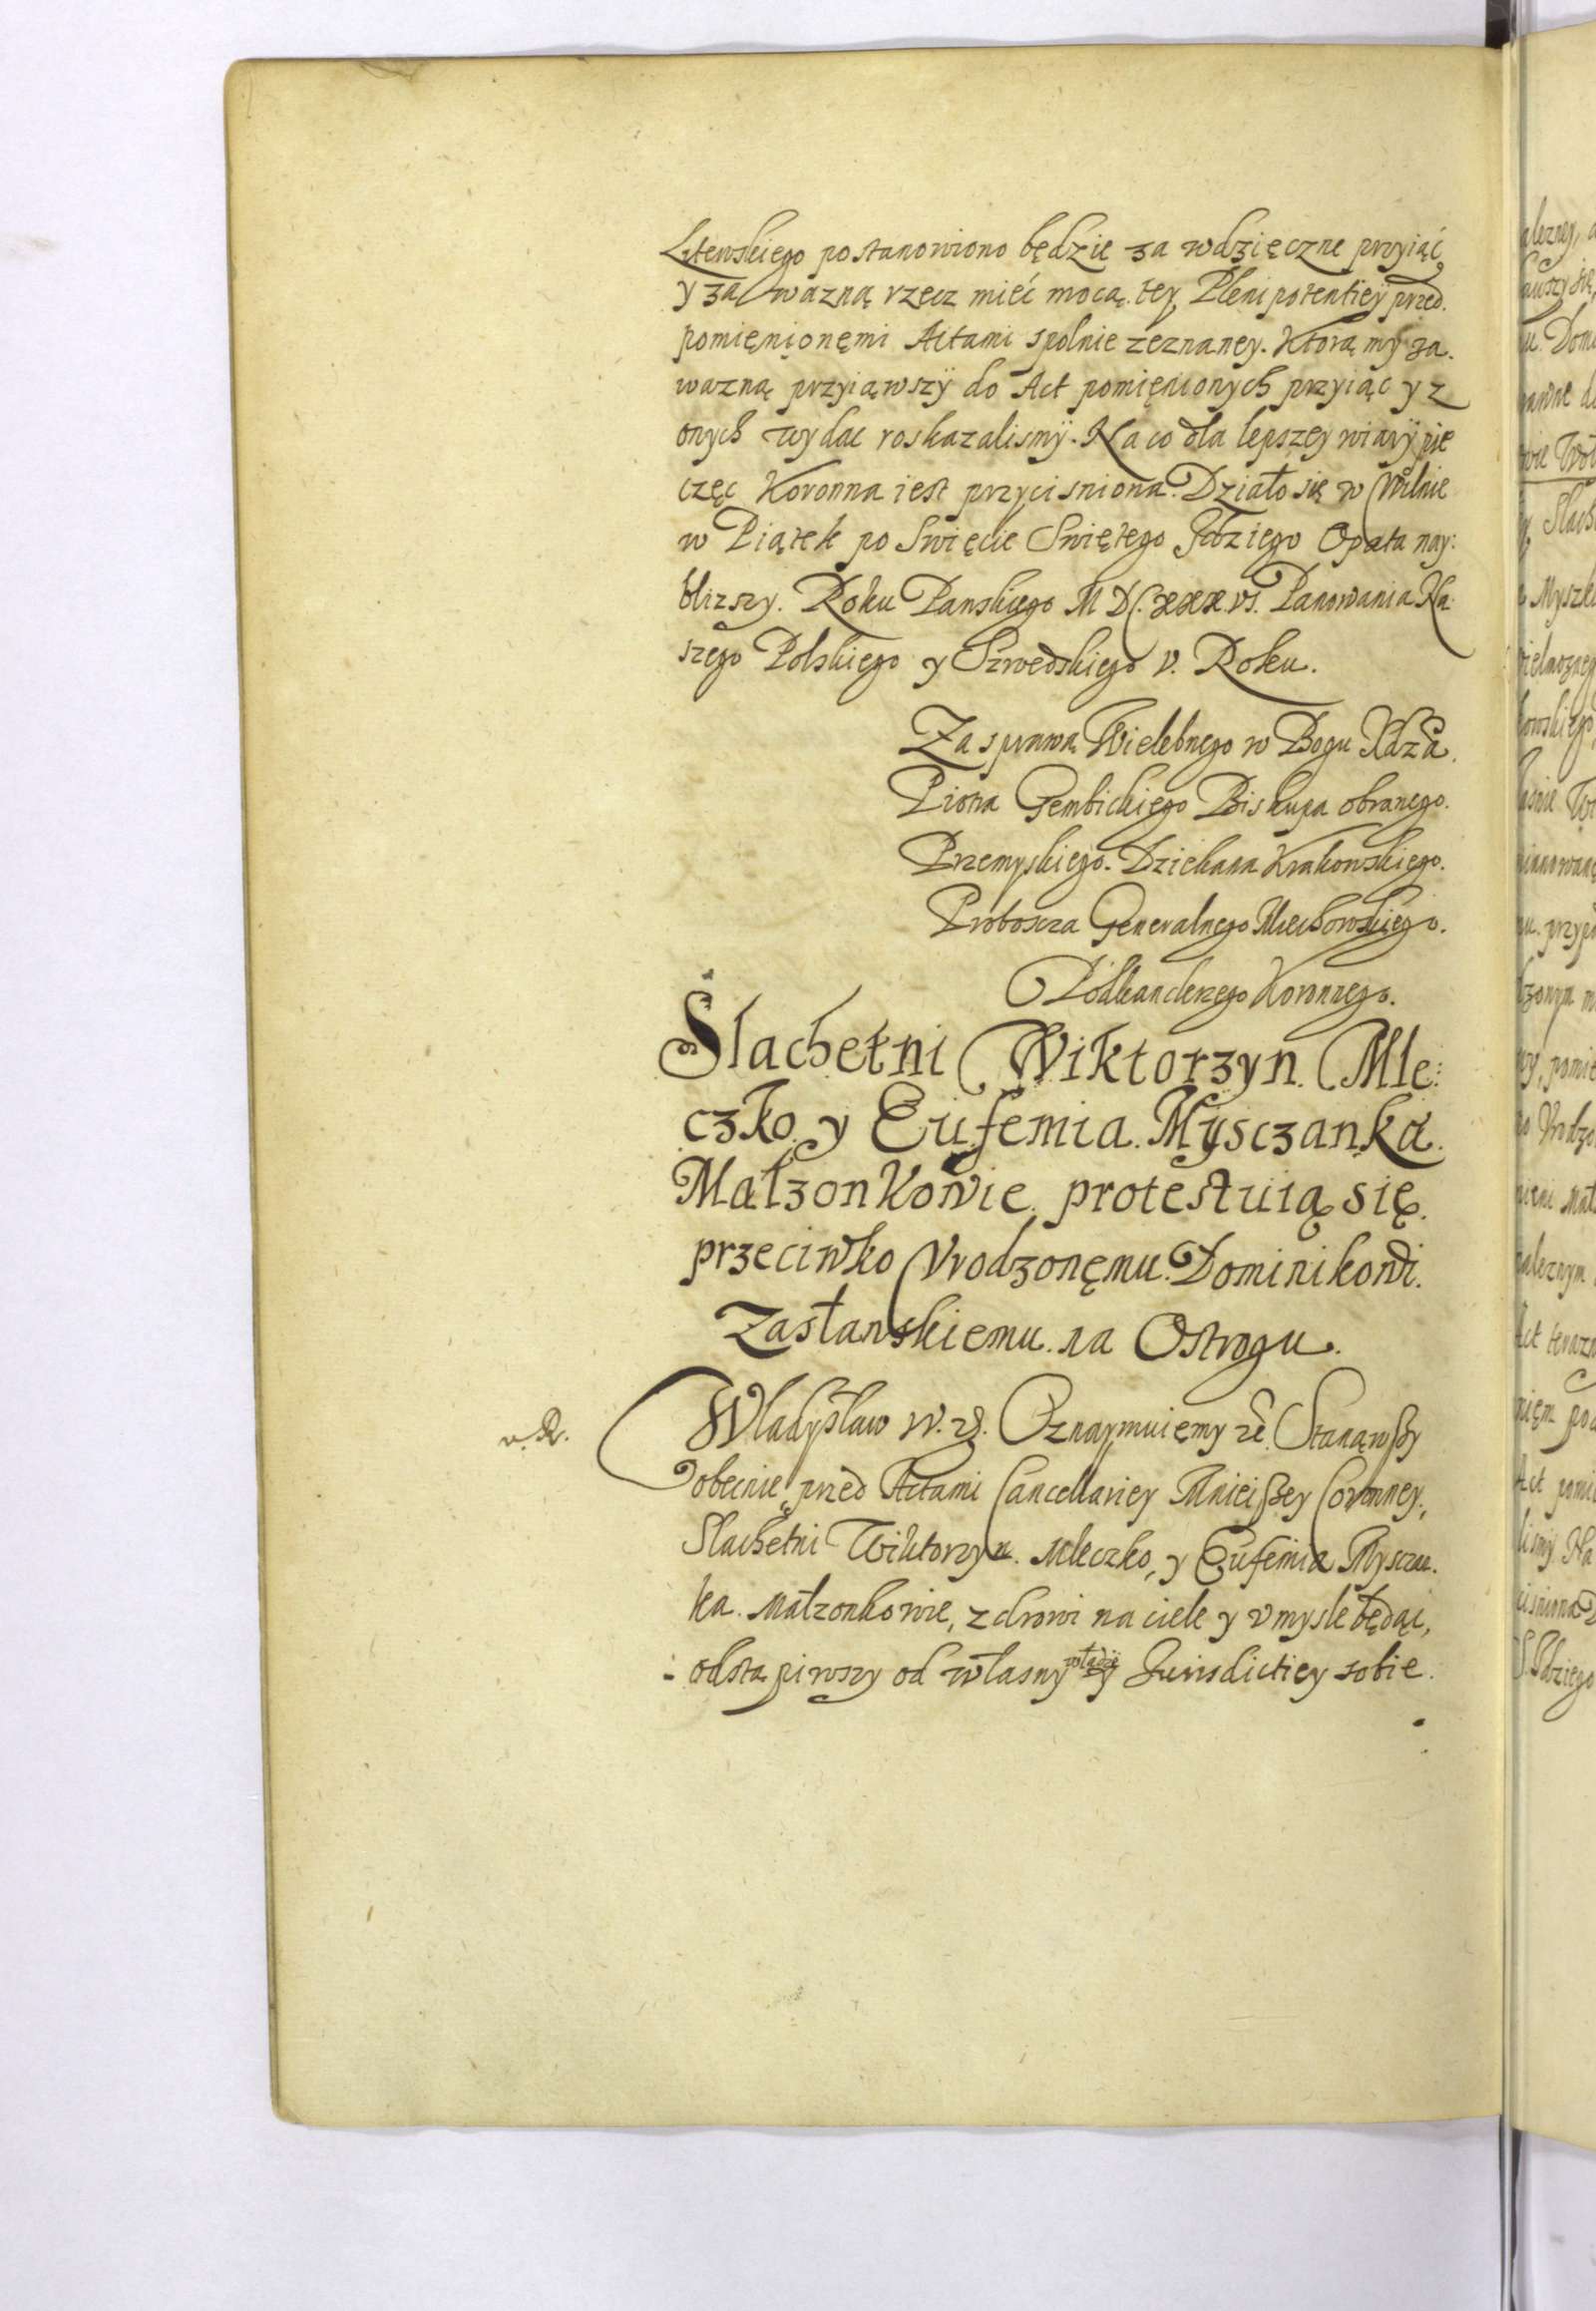 Litewskiego postanowiono będzie za wdzięczne przyiąć
y za wazną rzecz mieć mocą tey Plenipotentiey przed
pomięnionęmi Actami spolnie zeznaney. Ktorą my za
wazną przyiąwszÿ do Act pomięnionych przyiąc y z
onych wydac roskazalismÿ. Na co dla lepszey wiarÿ pie
częc Koronna iest przycisniona. Działo się w Wilnie
w Piątek po Swięcie Swiętego Idziego Opata nay:
blizszy. Roku Panskiego MDCXXX.VI. Panowania Na
szego Polskiego y Szwedskiego V. Roku.
Za sprawą Wielebnego w Bogu Xdza
Piotra Gembickiego Biskupa obranego
Przemyskiego. Dziekana Krakowskiego.
Proboscza Generalnego Miechowskiego.
Podkanclerzego Koronnego.
Slachetni Wiktorzyn Mle:
czko y Eufemia Mysczanka
Małzonkowie protestuią się
przeciwko Vrodzonęmu Dominikowi
Zasławskiemu na Ostrogu.
Wladysław W. Oznaymuięmy ze Stanąwszy
obecnie przed Actami Cancellariey Mnieiszey Coronney,
Slachetni Wiktorzyn Mleczko, y Eufemia Mysczan
ka Małzonkowie, zdrowi na ciele y vmysle będąc,
odstąpiwszy od własny Jurisdictiey sobie